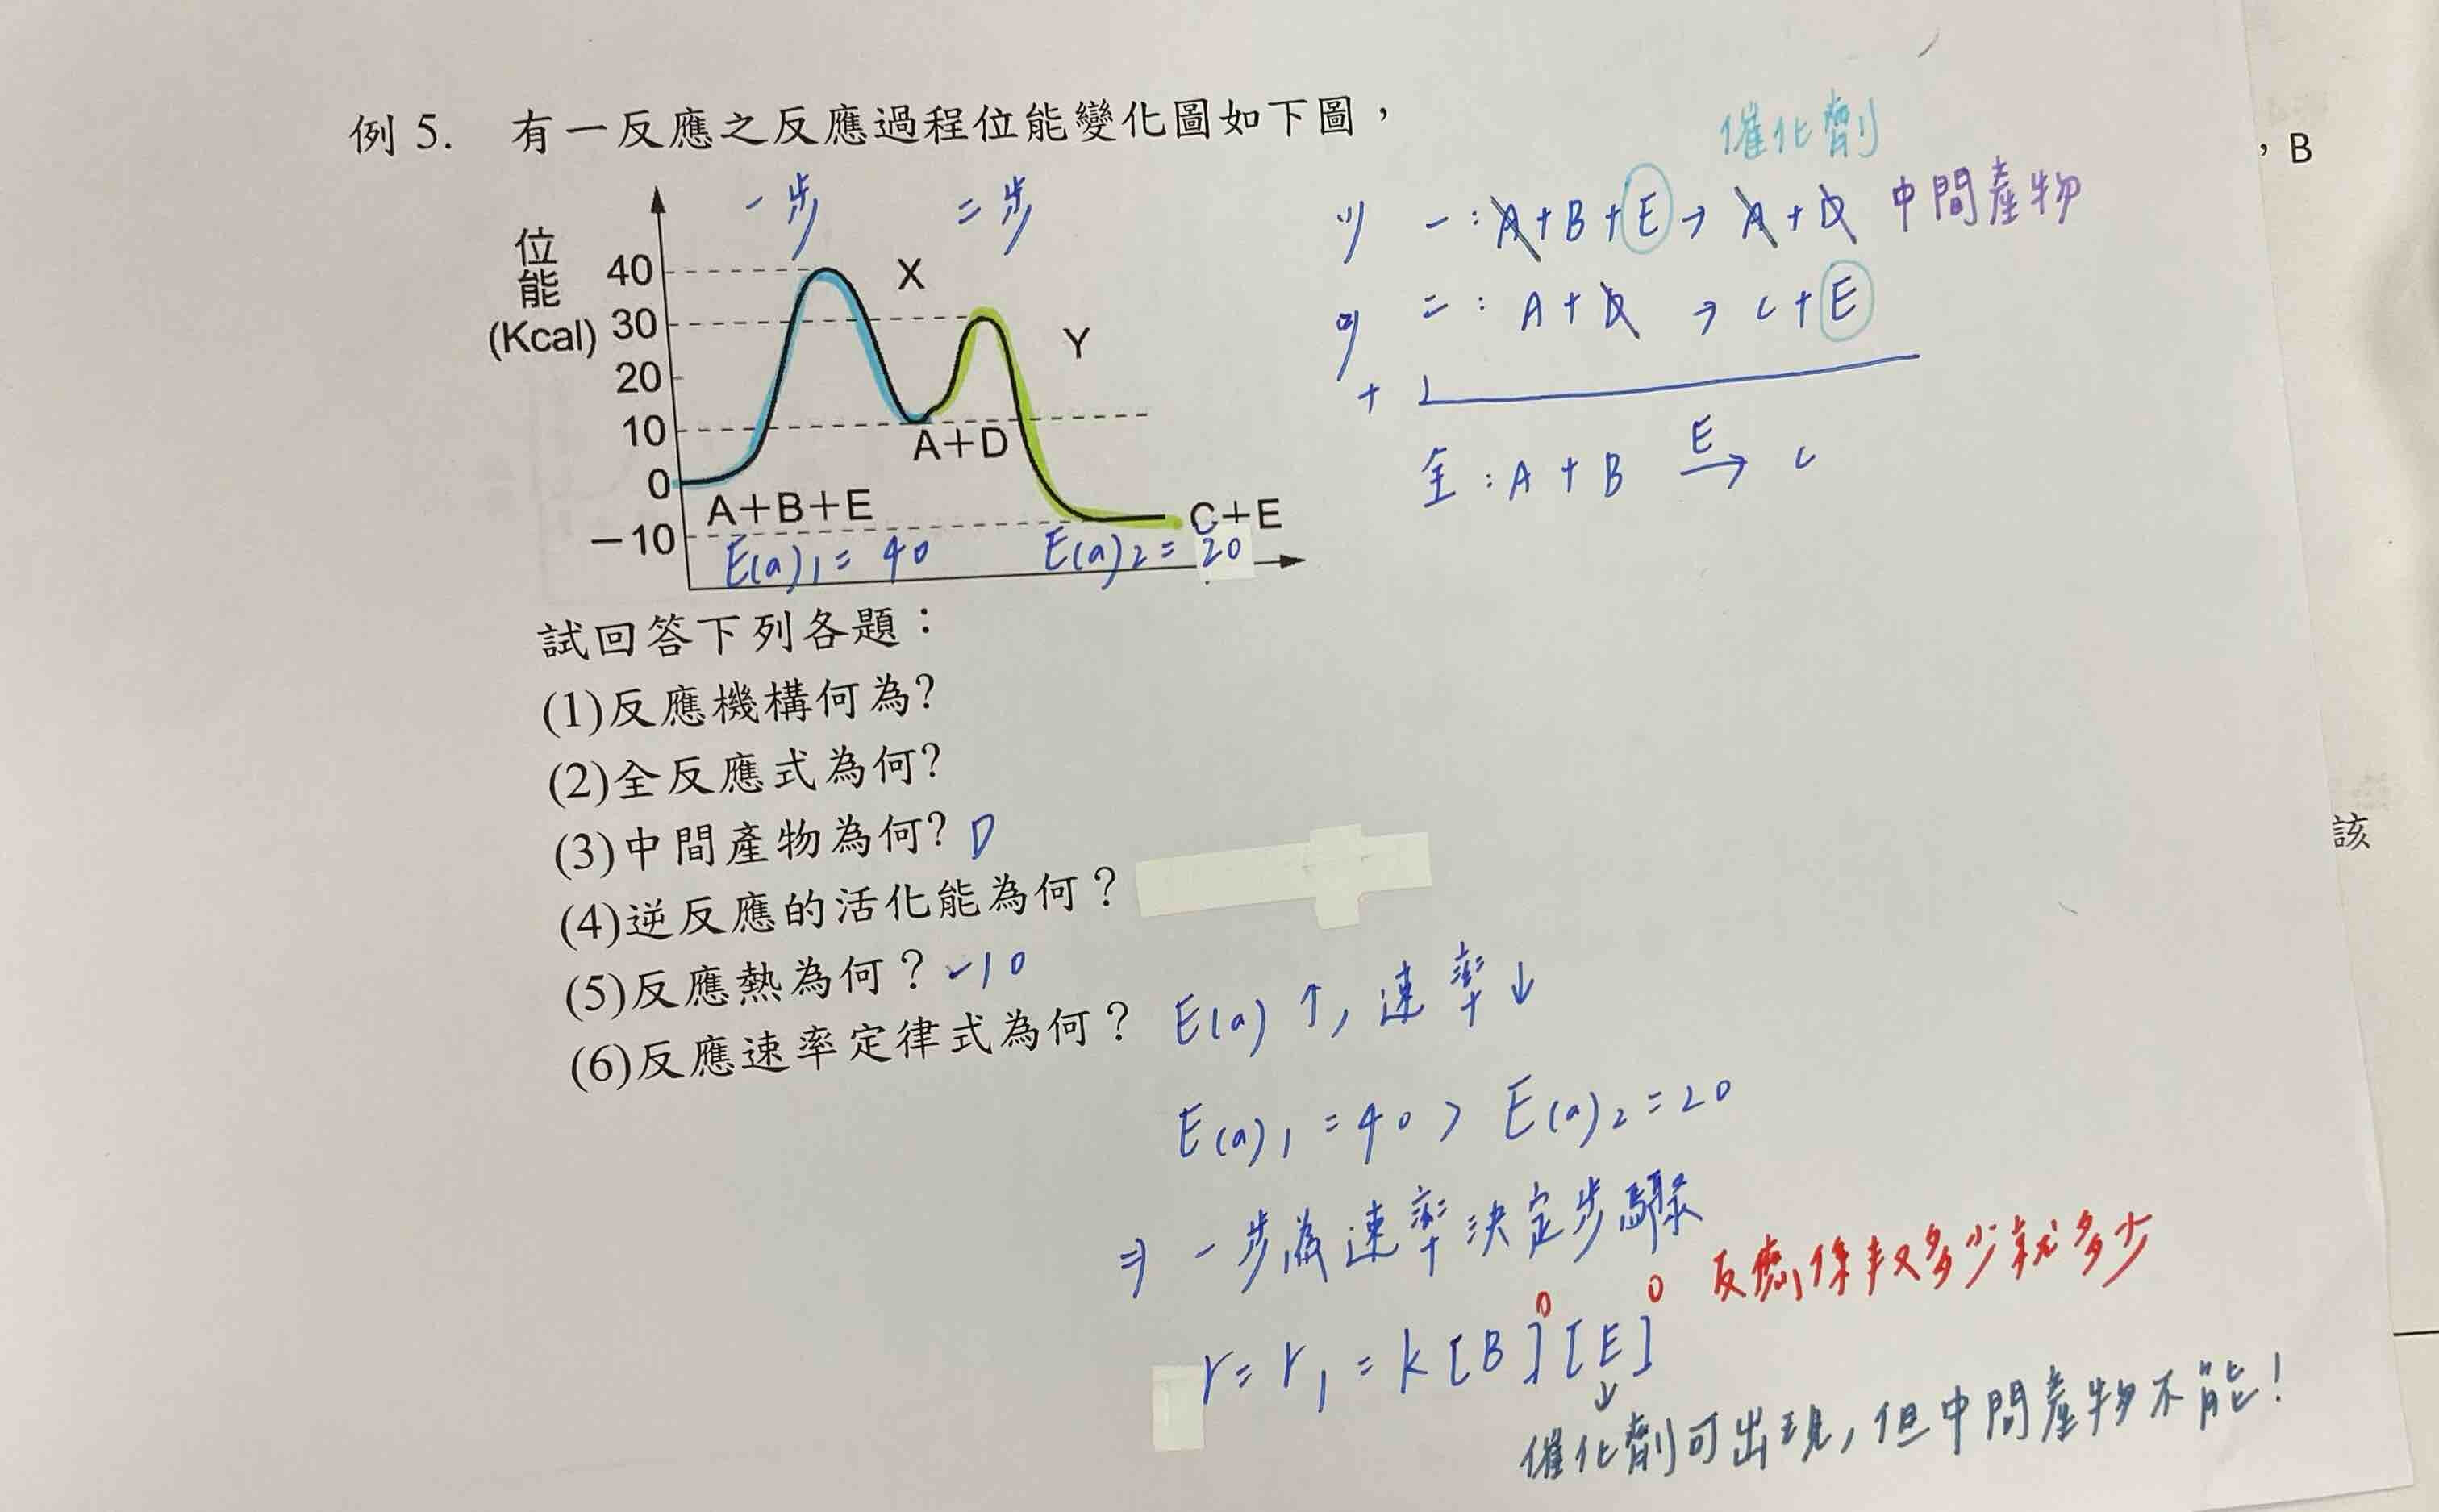 例 5. 有一反應之反應過程位能變化圖如下圖，
，B
一步 二步
位能
(Kcal)
40
30
20
10
0
－10
X
Y
A＋D
A＋B＋E
C＋E
E(a)1 = 40 E(a)2 = 20
催化劑
(1) 一：A + B + E → A + D 中間產物
(2) 二：A + D → C + E
+
全：A + B E→ C
試回答下列各題：
(1)反應機構何為?
(2)全反應式為何?
(3)中間產物為何? D
(4)逆反應的活化能為何？
(5)反應熱為何？ -10
(6)反應速率定律式為何？ E(a) ↑, 速率↓
E(a)1 = 40 > E(a)2 = 20
⇒ 一步為速率決定步驟
r = r1 = k [B]0 [E]0 反應係數多少就多少
↓
催化劑可出現, 但中間產物不能!
該